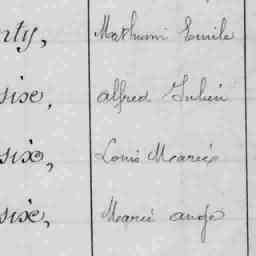 nty, Mathurin Emile
sixe, alfred Julien
six, Louis Marie
six, Marie ange